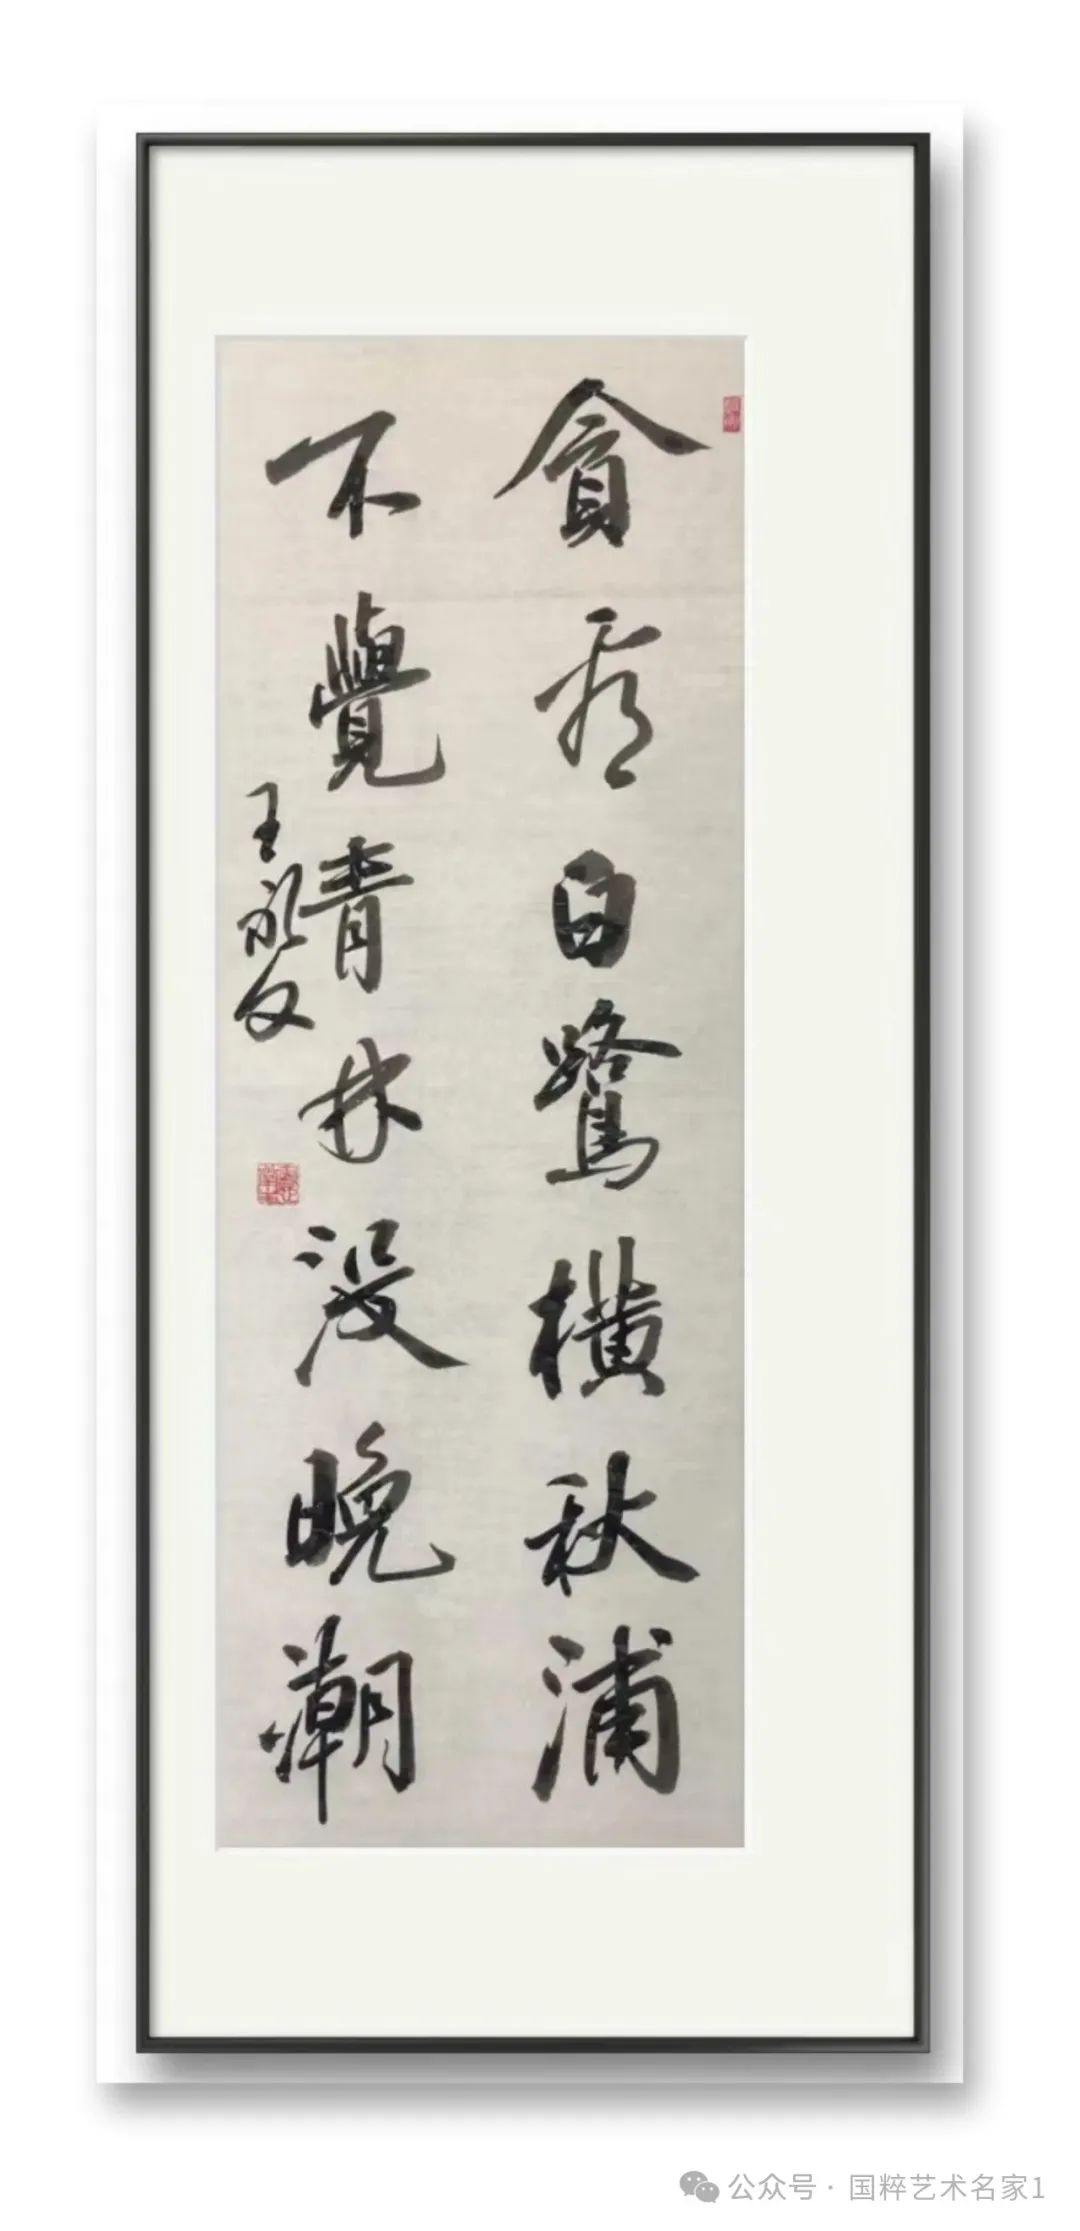 貪看白鷺橫秋浦
不覺青林没晚潮
王永文
公众号 · 国粹艺术名家1